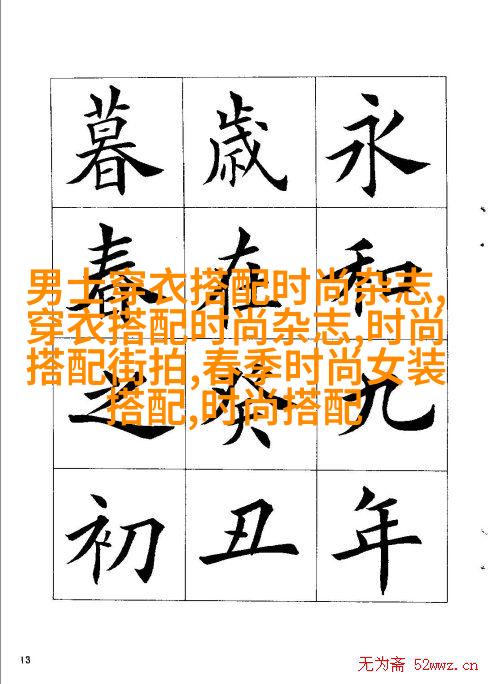 永和九年
歲在癸丑
暮春之初
男士穿衣搭配时尚杂志,
穿衣搭配时尚杂志,时尚
搭配街拍,春季时尚女装
搭配,时尚搭配
13
无为斋 52wwz.cn